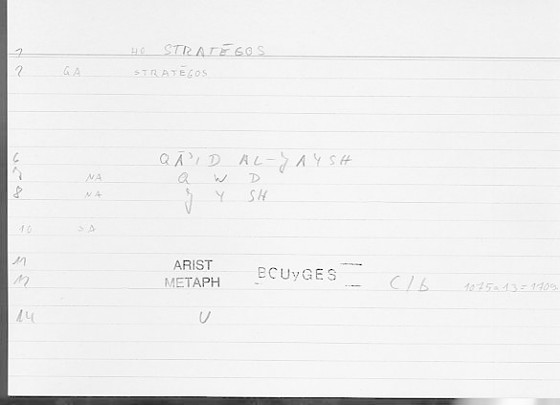 1 HO STRATĒGOS
2 GA STRATĒGOS
6 QĀʾI D AL-ǦAYSH
7 NA Q W D
8 NA Ǧ Y SH
10 DA
11 ARIST
12 METAPH BCUyGES C/b 1075a13=1709
14 U